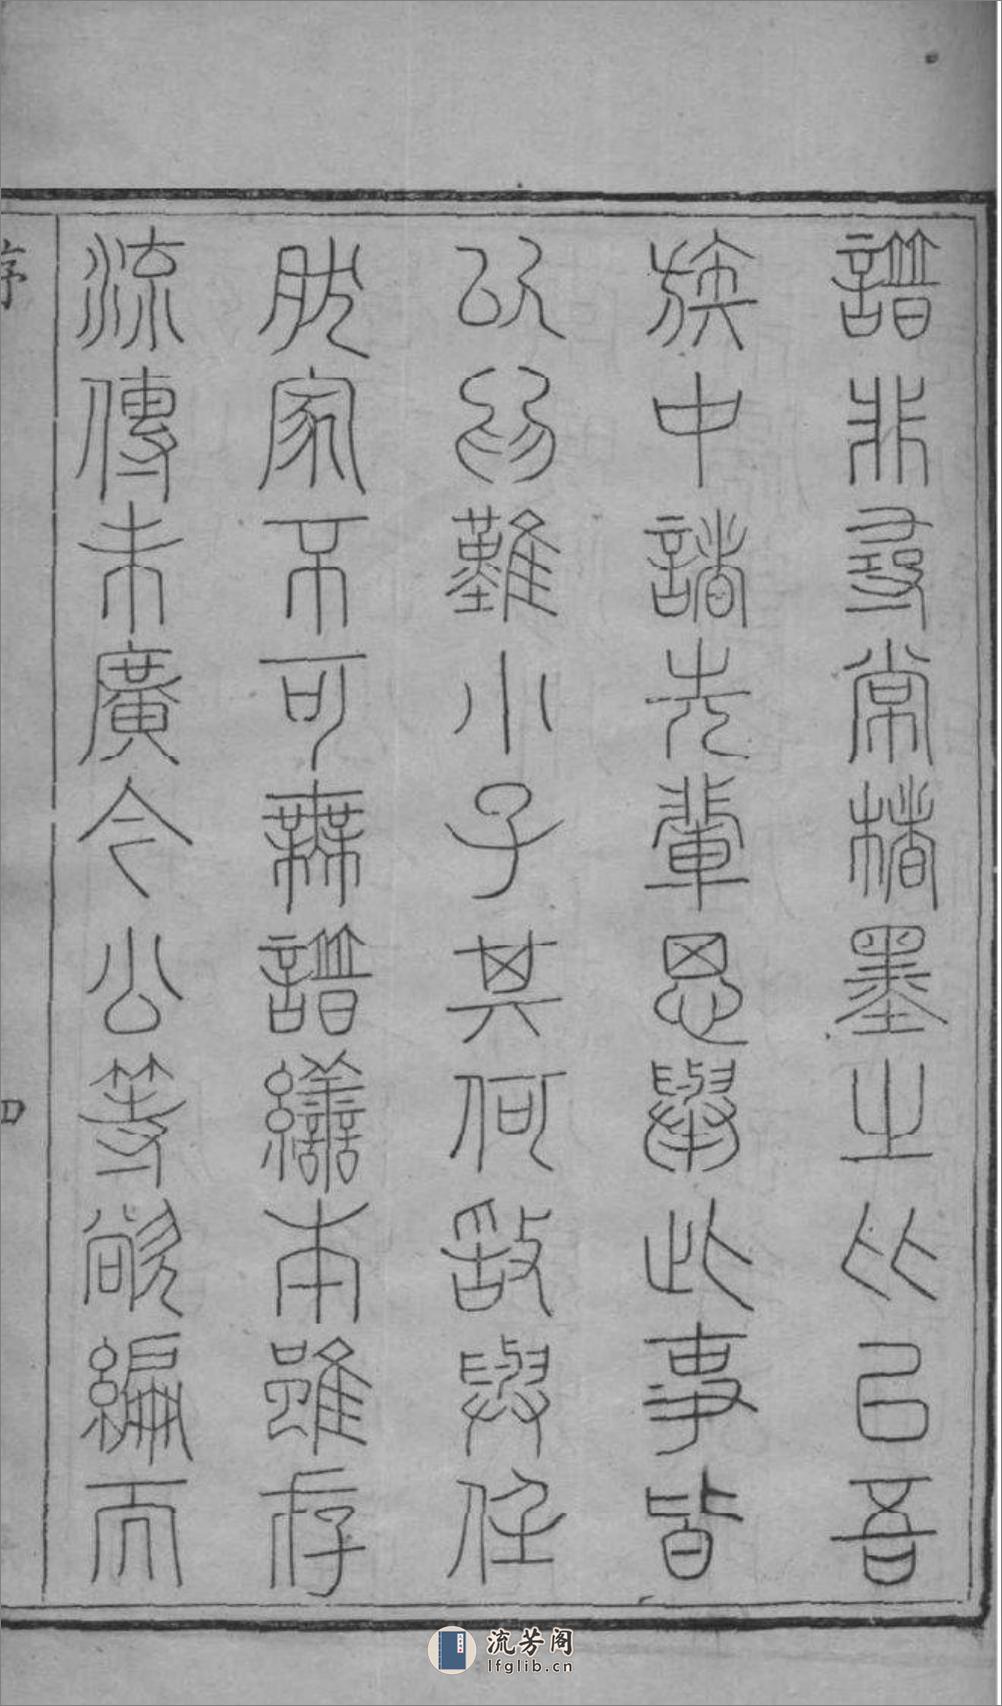 譜非尋常楮墨之比已吾
族中諸先輩思舉此事皆
以為難小子其何敢與任
肰家不可無譜繕本雖存
流傳未廣今公等欲編而
序
四
流芳阁
lfglib.cn